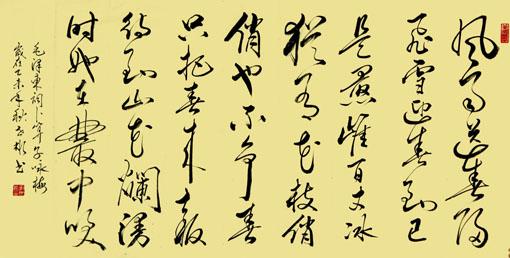 風雨送春歸
飛雪迎春到已
是懸崖百丈冰
猶有花枝俏
俏也不爭春
只把春來報
待到山花爛漫
時她在叢中笑
毛澤東詞卜算子咏梅
歲在乙未年秋書